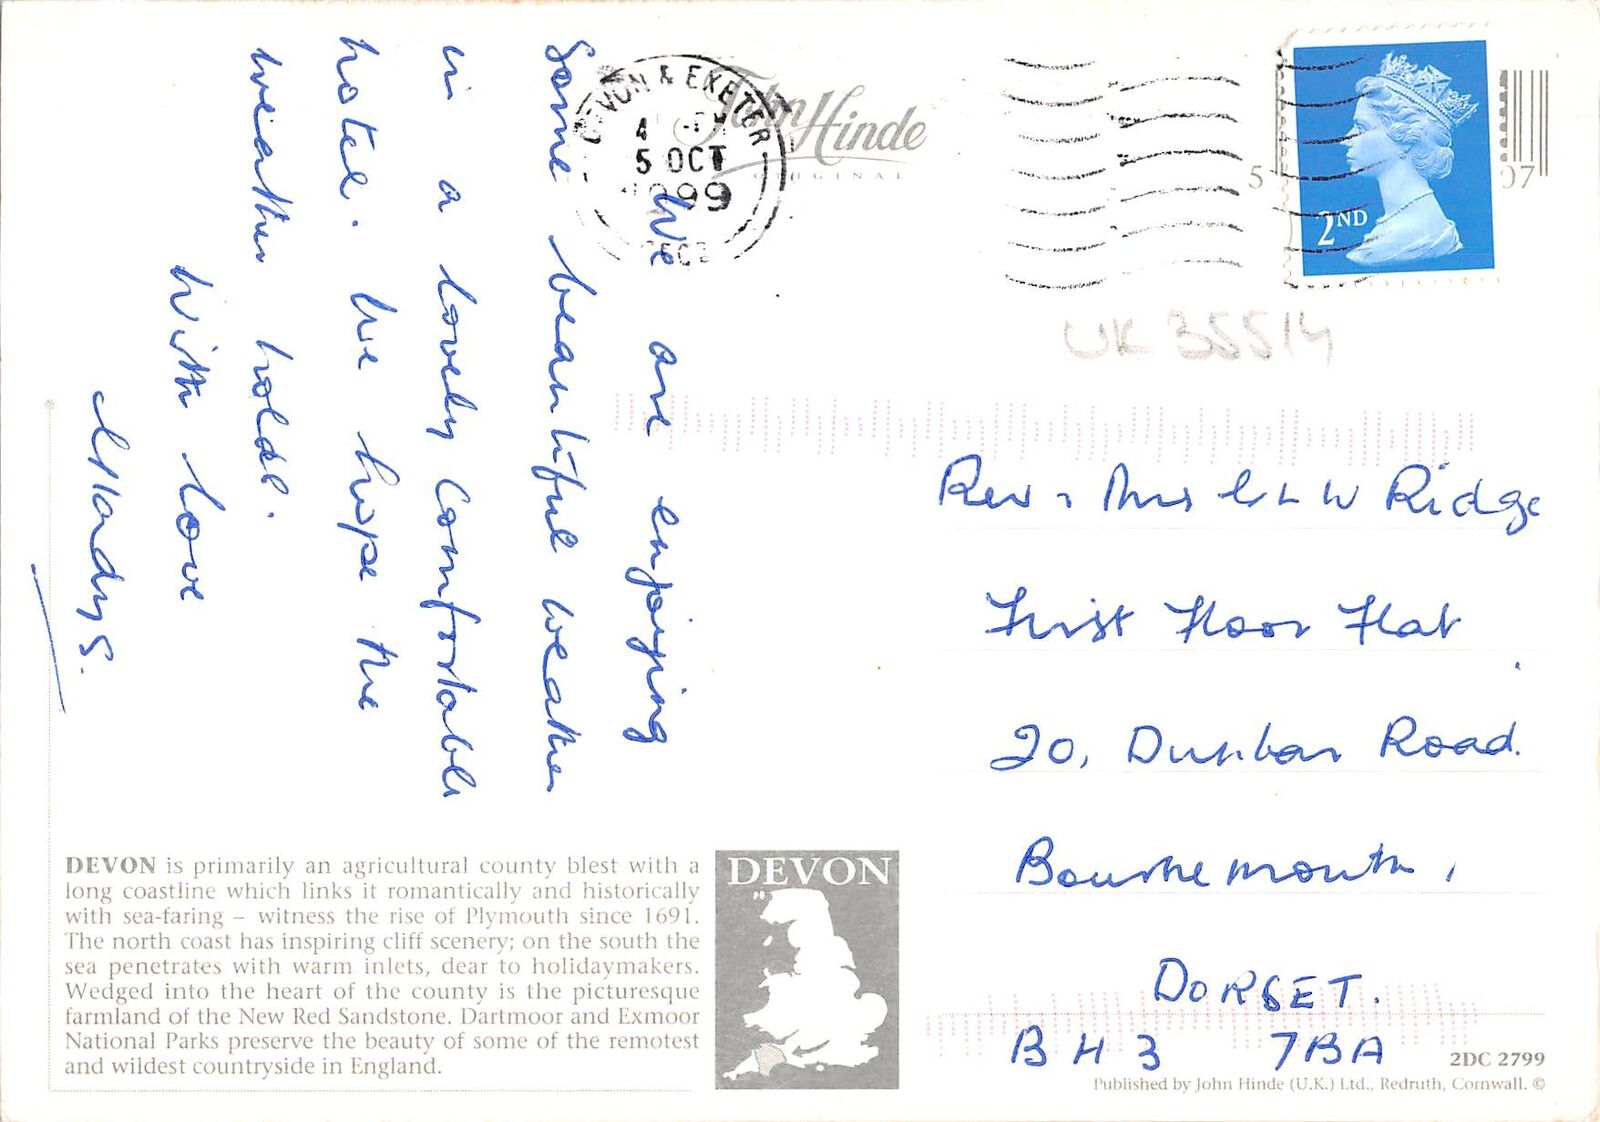 We are enjoying
Some beautiful weather
in a lovely Comfortable
hotel. We hope the
weather holds.
With Love
Madys.
DEVON & EXETER
5 OCT
1999
John Hinde
ORIGINAL
5
07
2ND
UK 35514
Rev & Mrs L W Ridge
First Floor Flat
20, Dunbar Road.
Bournemouth,
DORSET.
BH3 7BA
DEVON is primarily an agricultural county blest with a
long coastline which links it romantically and historically
with sea-faring – witness the rise of Plymouth since 1691.
The north coast has inspiring cliff scenery; on the south the
sea penetrates with warm inlets, dear to holidaymakers.
Wedged into the heart of the county is the picturesque
farmland of the New Red Sandstone. Dartmoor and Exmoor
National Parks preserve the beauty of some of the remotest
and wildest countryside in England.
DEVON
2DC 2799
Published by John Hinde (U.K.) Ltd., Redruth, Cornwall. ©